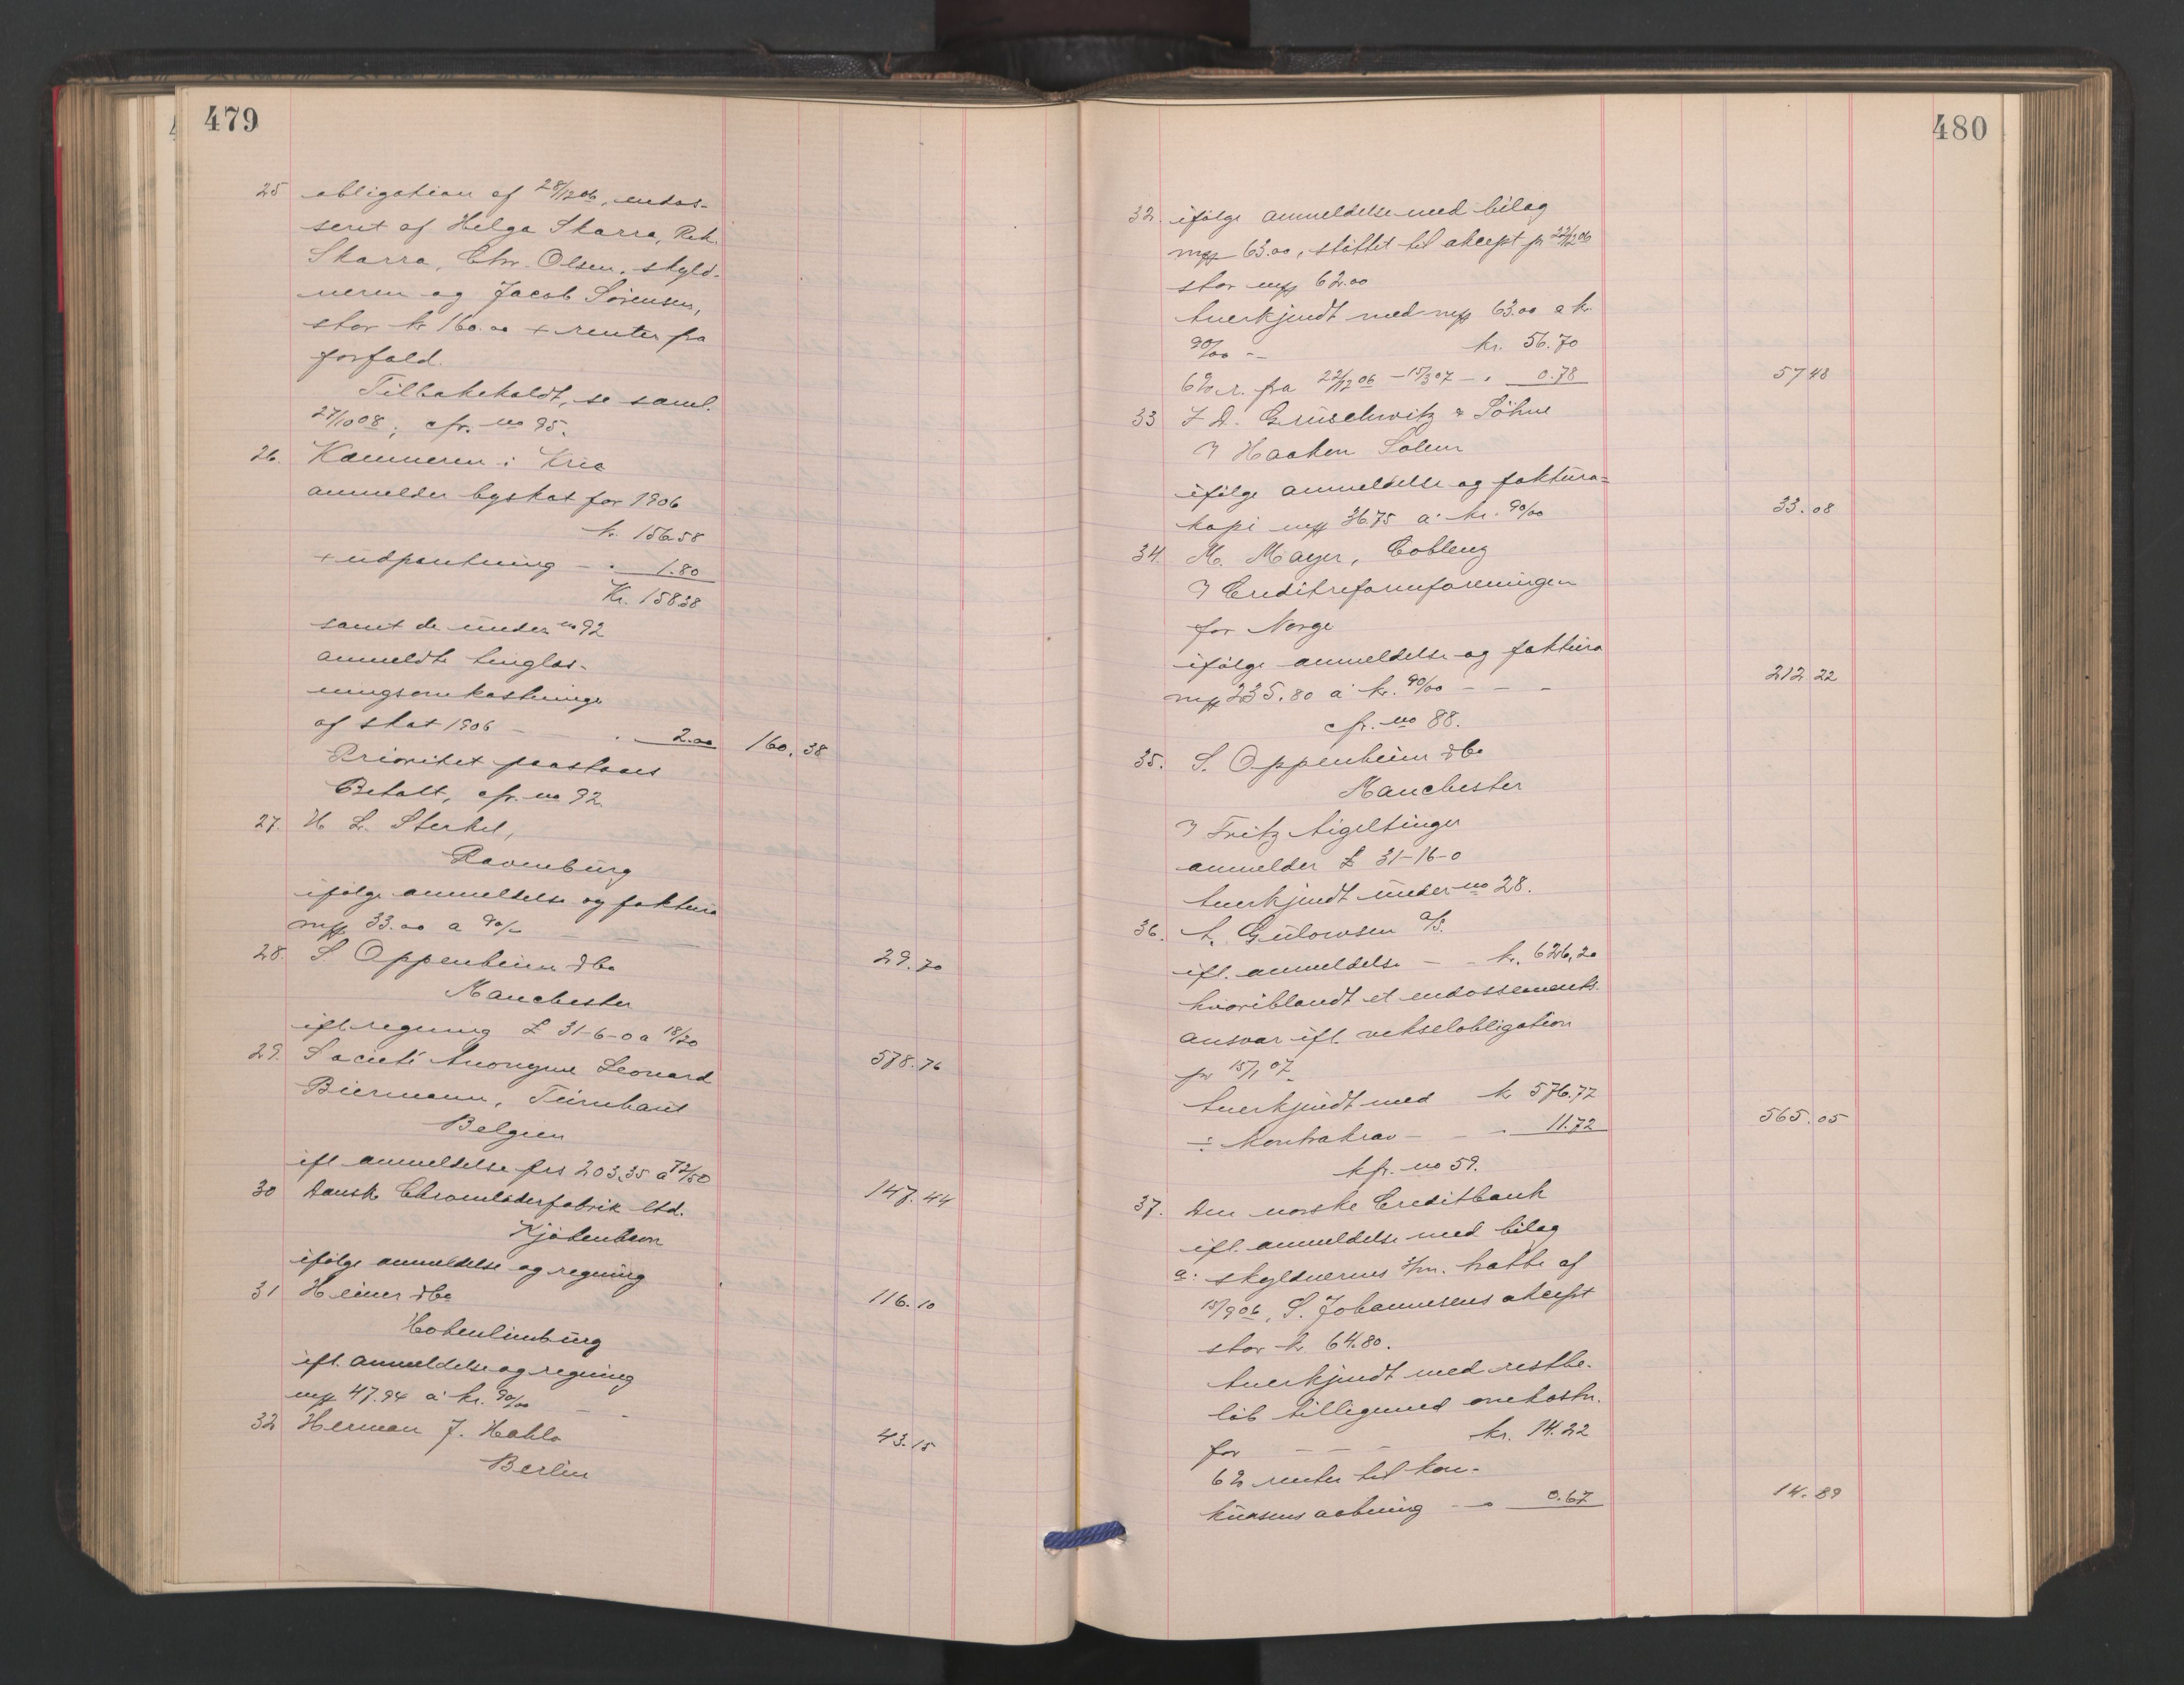 479
25 obligation af 28/12 06, endos-
sert af Helga Skarra, Rich.
Skarra, Chr. Olsen, skyld-
neren og Jacob Sørensen,
stor kr 160.00 + renter fra
forfald.
Tilbakekaldt, se saml.
27/10 08; cfr. no 95.
26. Kæmneren i Kria
anmelder byskat for 1906
kr. 156.58
+ udpantning - " 1.80
Kr. 158.38
samt de under no 92
anmeldte tinglæs-
ningsomkostninger
af skat 1906 - - " 2.00 160.38
Prioritet paastaaes
Betalt, cfr. no 92.
27. H L. Sterkel,
Ravensbürg
ifølge anmeldelse og faktura
mk 33.00 a 90/00 - - - 29.70
28. S. Oppenheim & Co
Manchester
ifl. regning £ 31-6-0 a 18/20 578.76
29. Societé Anonyme Leonard
Biermann, Türnhaut
Belgien
ifl anmeldelse frs 203.35 a 72/50 147.44
30 Dansk Chromlæderfabrik ltd.
Kjøbenhavn
ifølge anmeldelse og regning 116.10
31 Heiner & Co
Hohenlimbürg
ifl. anmeldelse og regning
mk 47.94 a kr. 90/00 - - 43.15
32 Herman J. Hahlo
Berlin
480
32. ifølge anmeldelse med bilag
mk 63.00, støttet til akcept pr 22/12 06
stor mk 62.00
Anerkjendt med mk 63.00 a kr.
90/00 - - kr. 56.70
6% r. fra 22/12 06 - 15/3 07 - " 0.78 57.48
33 J D. Grüschwitz & Söhne
v Haaken Solem
ifølge anmeldelse og faktura=
kopi mk 36.75 a kr. 90/00 33.08
34. M. Mayer, Coblenz
v Creditreformforeningen
for Norge
ifølge anmeldelse og faktura
mk 235.80 a kr. 90/00 - - - 212.22
cfr. no 88.
35. S. Oppenheim & Co
Manchester
v Fritz Aigeltinger
anmelder £ 31-16-0
Anerkjendt under no 28.
36. A. Gulowsen A/S.
ifl. anmeldelse - - kr. 626,20
hvoriblandt et endossements-
ansvar ifl. vekselobligation
pr 15/1 07.
Anerkjendt med kr 576.77
÷ Kontrakrav - - " 11.72 565.05
kfr. no 59.
37. Den norske Creditbank
ifl. anmeldelse med bilag
a: skyldnernes 3/m. tratte af
15/9 06, S. Johannesens akcept
stor kr. 64.80.
Anerkjendt med restbe-
løb tilligemed omkostn.
for - - - kr. 14.22
6% renter til kon-
kursens aabning - " 0.67 14.89